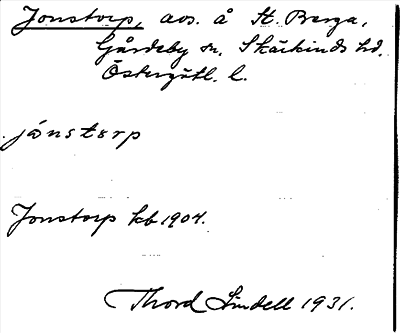 Jonstorp, avs. å St. Berga,
Gårdeby sn. Skärkinds hd.
Östergötl. l.
jónstərp
Jonstorp kb 1904.
Thord Lindell 1931.